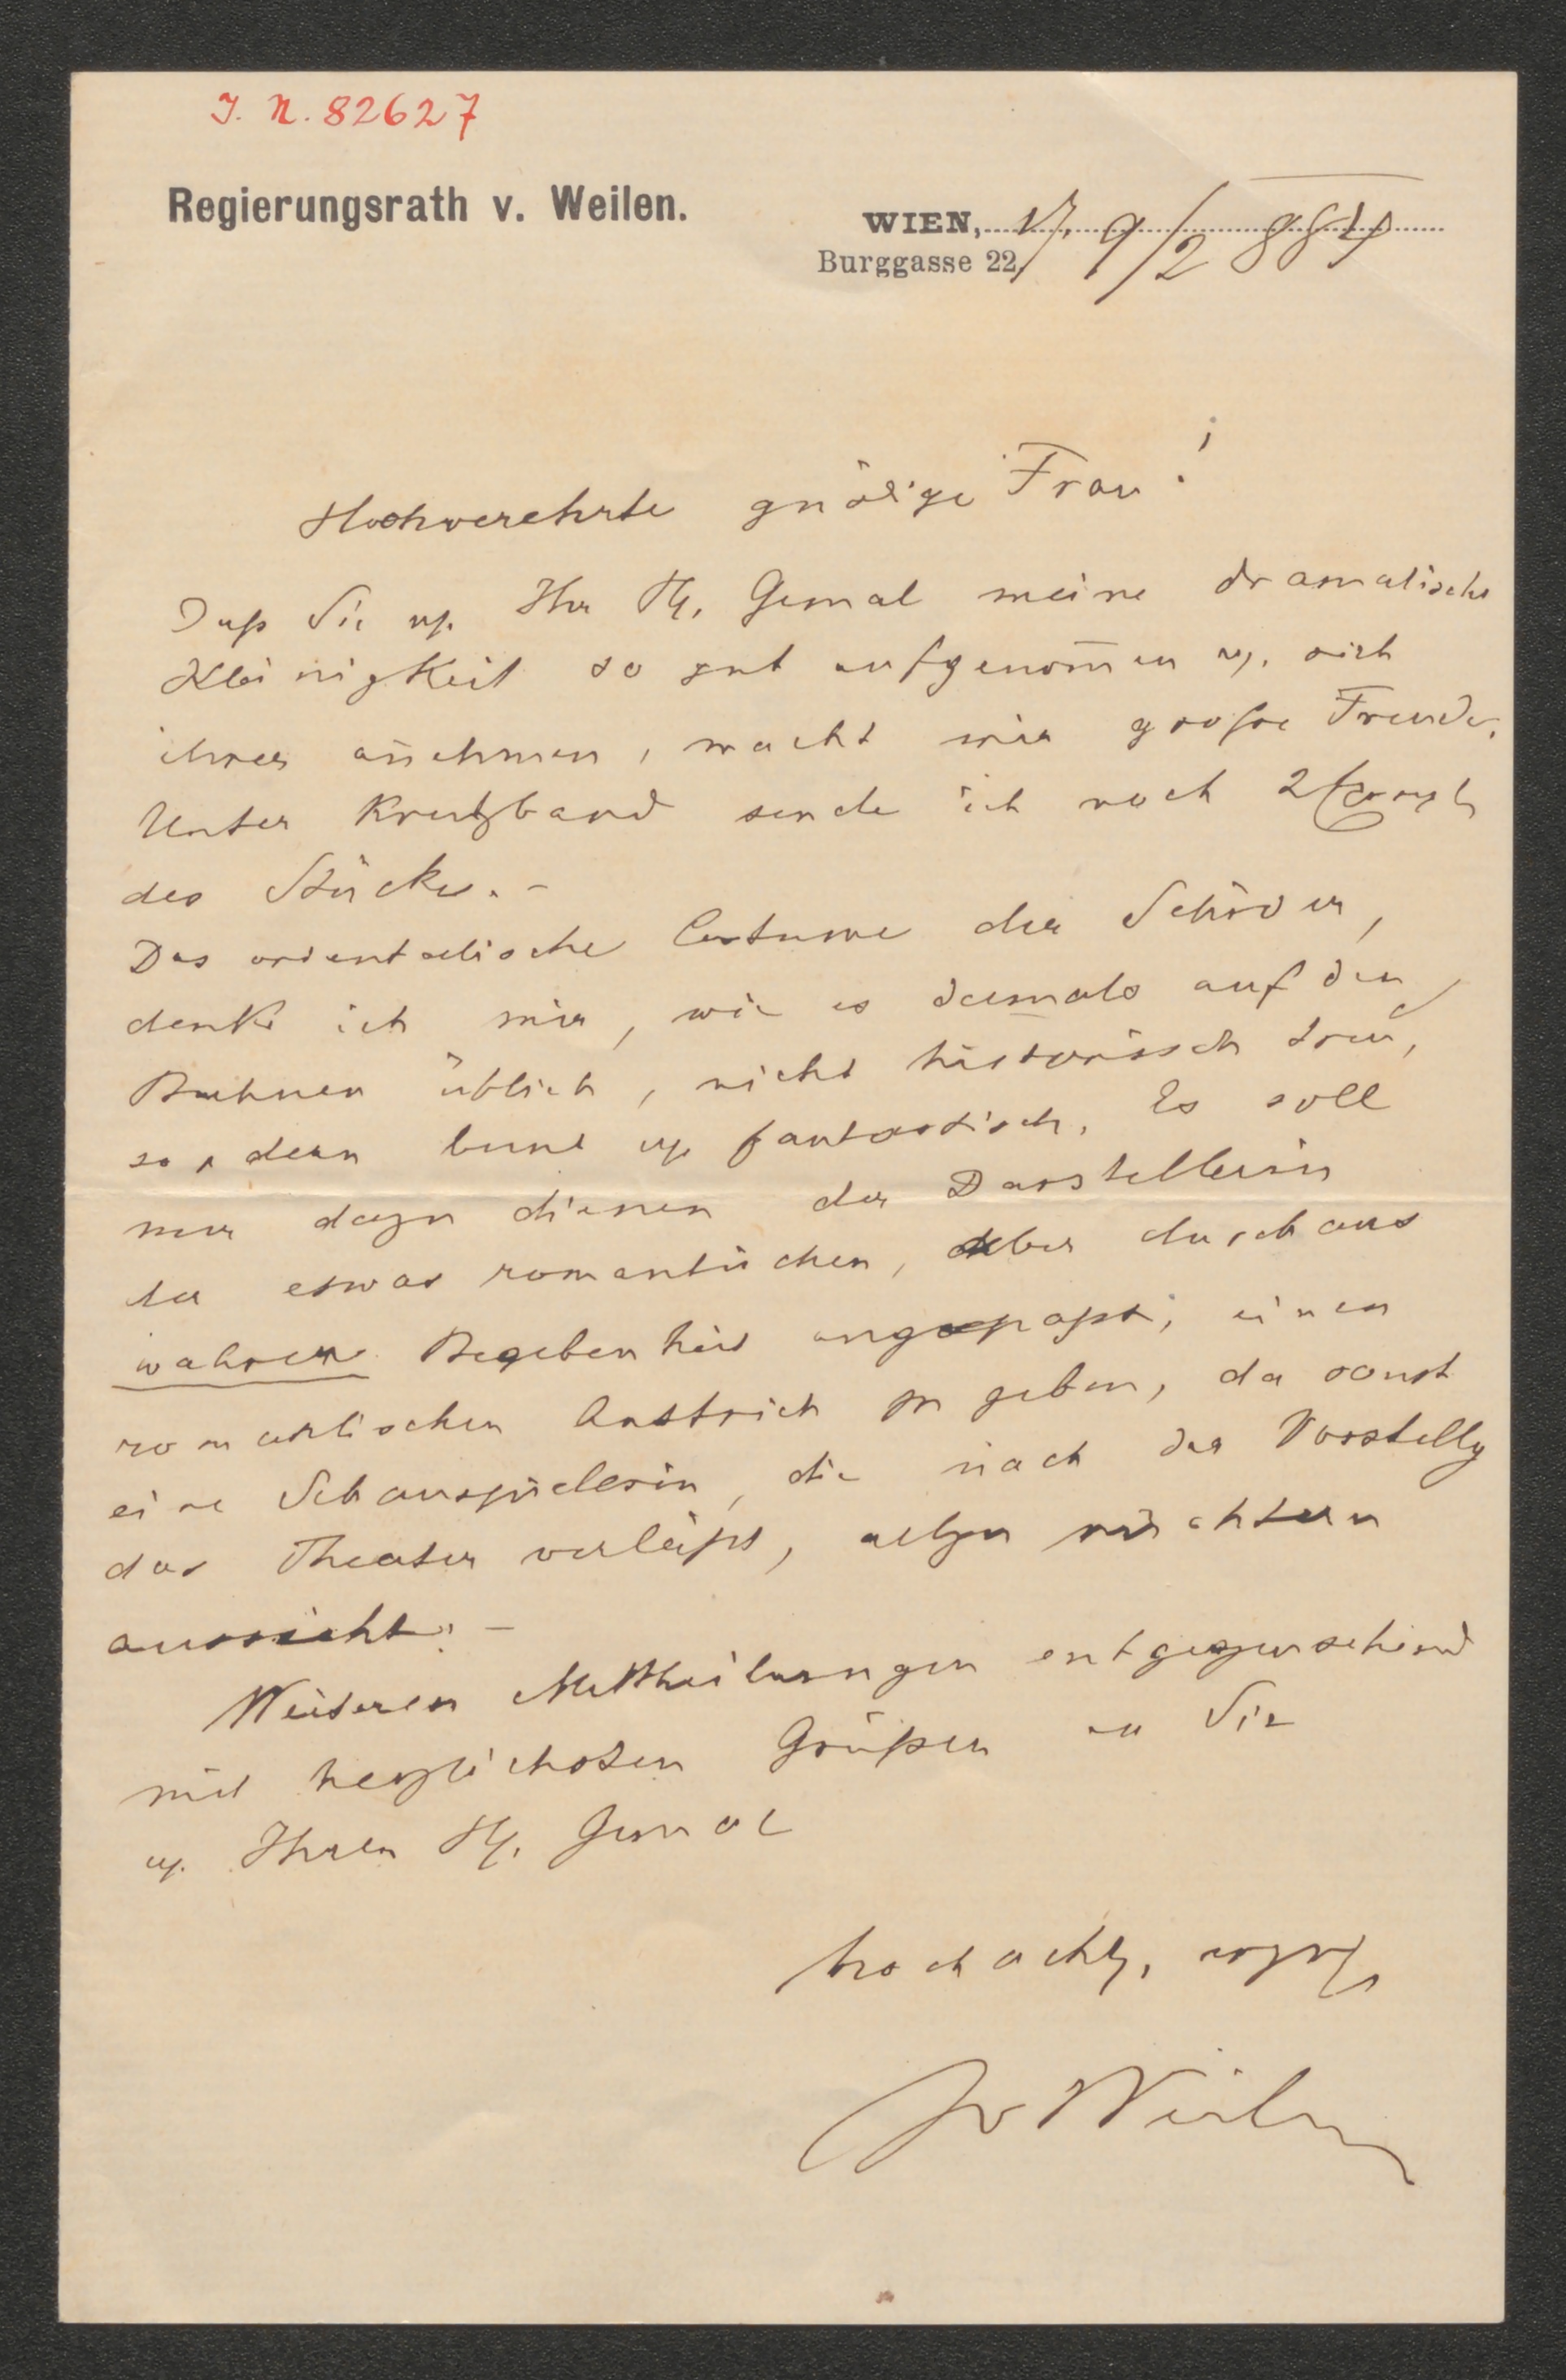 I. N. 82627
Regierungsrath v. Weilen.
WIEN, 9/2 884
Burggasse 22
Hochverehrte gnädige Frau!
Daß Sie u. Ihr H. Gemal meine dramatische
Kleinigkeit so gut aufgenom̄en u. sich
ihrer an̄ehmen, macht mir große Freude.
Unter Kreuzband sende ich noch 2
des Stückes. -
Das orientalische Costume der
denke ich mir, wie es damals auf den
Buhnen üblich, nicht historisch treu,
sondern bunt u. fantastisch. Es soll
nur dazu dienen der Darstellerin
der etwas romantischen, aber durchaus
wahren Begebenheit angepaßt, einen
romantischen Anstrich zu geben, da sonst
eine Schauspielerin, die nach der Vorstellg
das Theater verläßt, allzu nüchtern
aussieht. -
Weiteren Mittheilungen entgegensehend
mit herzlichsten Grüßen an Sie
u. Ihren H. Gemal
hochachtg.
Jv Weilen